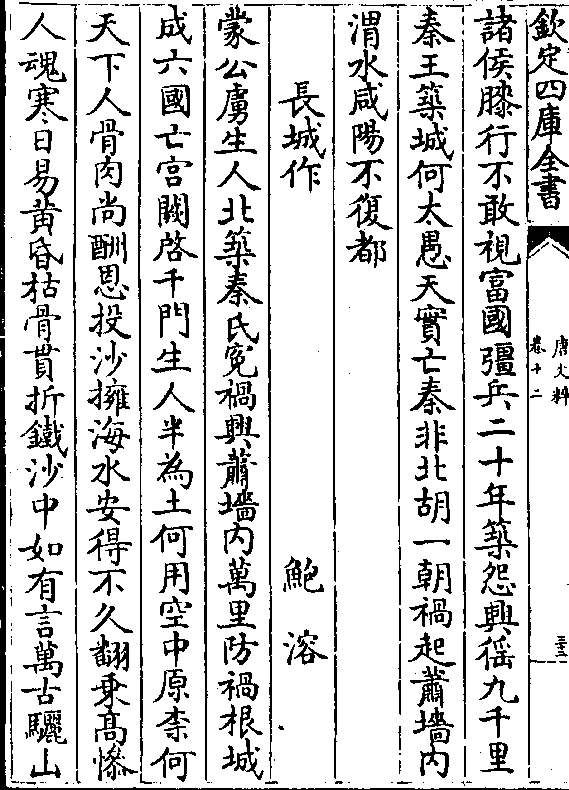 欽定四庫全書
唐文粹
卷十二
三三
諸侯膝行不敢視富國彊兵二十年築怨興徭九千里
秦王築城何太愚天實亡秦非北胡一朝禍起蕭墻内
渭水咸陽不復都
長城作
鮑溶
蒙公虜生人北築秦氏冤禍興蕭墻内萬里防禍根城
成六國亡宫闕啓千門生人半為土何用空中原柰何
天下人骨肉尚酬恩投沙擁海水安得不久翻乗髙慘
人魂寒日易黄昏枯骨貫折鐵沙中如有言萬古驪山